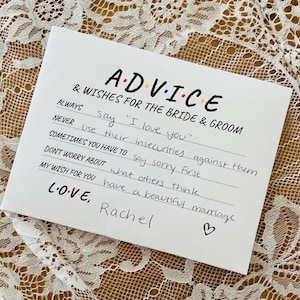 A·D·V·I·C·E
& WISHES FOR THE BRIDE & GROOM
ALWAYS say "I love you"
NEVER use their insecurities against them
SOMETIMES YOU HAVE TO say sorry first
DON'T WORRY ABOUT what others think
MY WISH FOR YOU have a beautiful marriage
L·O·V·E, Rachel